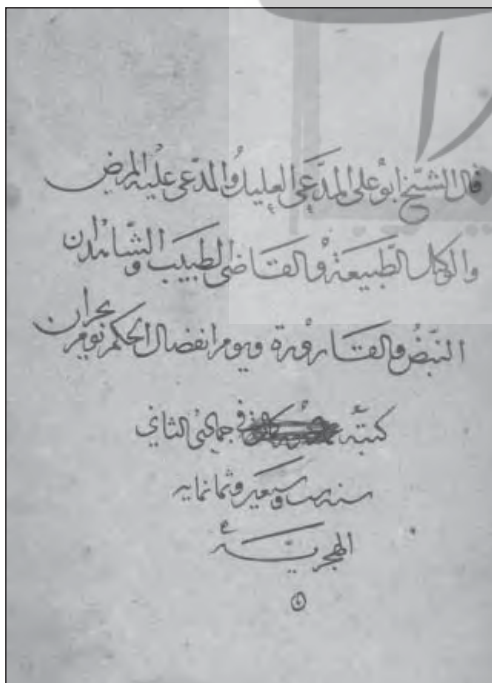 قال الشيخ ابو علی المدّعی العلیل والمدّعی علیه المرض
والوکیل الطّبیعة والقاضی الطبیب والشّاهدان
النبض والقارورة ویوم انفصال الحکم یوم بحران
کتبه فی جمادی الثانی
سنه وسبعین وثمانمایه
الهجریّة